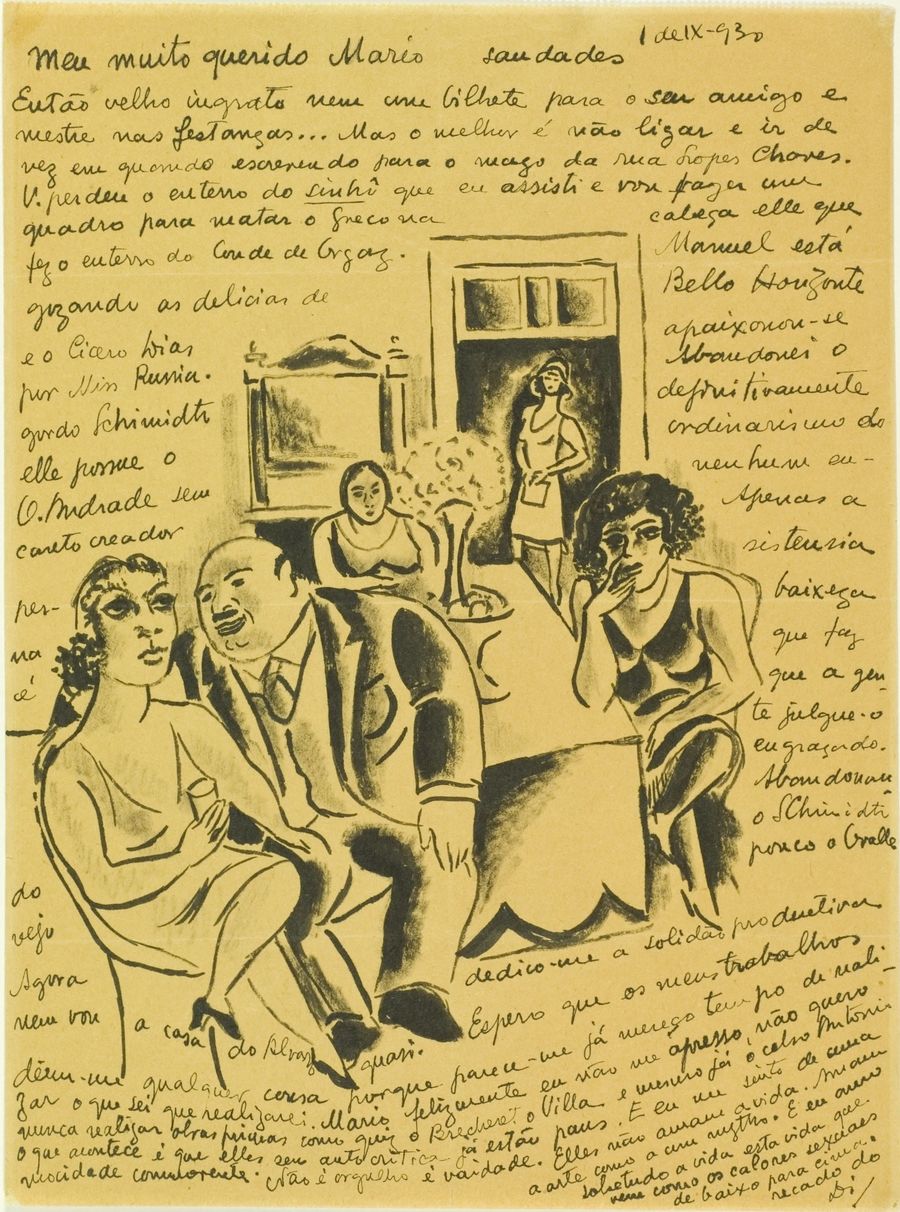 1 de IX-930
Meu muito querido Mario saudades
Então velho ingrato nem um bilhete para o seu amigo e
mestre nas festanças... Mas o melhor é não ligar e ir de
vez em quando escrevendo para o mago da rua Lopes Chaves.
V. perdeu o enterro do Sinhô que eu assisti e vou fazer um
quadro para matar o Greco na cabeça elle que
fez o enterro do Conde de Orgaz. Manuel está
gozando as delicias de Bello Horizonte
e o Cicero Dias apaixonou-se
por Miss Russia. Abandonei o
gordo Schimidt definitivamente
elle possue o ordinarismo do
O. Andrade sem nenhum en-
canto creador Apenas a
per- sistensia
na baixeza
é que faz
que a gen-
te julgue-o
engraçado.
Abandonan
do o SChimidt
vejo pouco o Ovalle
Agora dedico-me a solidão productiva
nem vou a casa do Alvaro quasi. Espero que os meus trabalhos
dêem-me qualquer cousa porque parece-me já mereço tempo de reali-
zar o que sei que realizarei. Mario felizmente eu não me apresso, não quero
nunca realizar obras primas como quiz o Brecheret o Villa e mesmo já o celso Antonio
o que acontece é que elles sem autocritica já estão paus. E eu me sinto de uma
mocidade commovente. Não é orgulho é vaidade. Elles não amam a vida. Amam
a arte como a um mytho. E eu amo
sobretudo a vida esta vida que
vem como os calores sexuaes
de baixo para cima.
recado do
Di